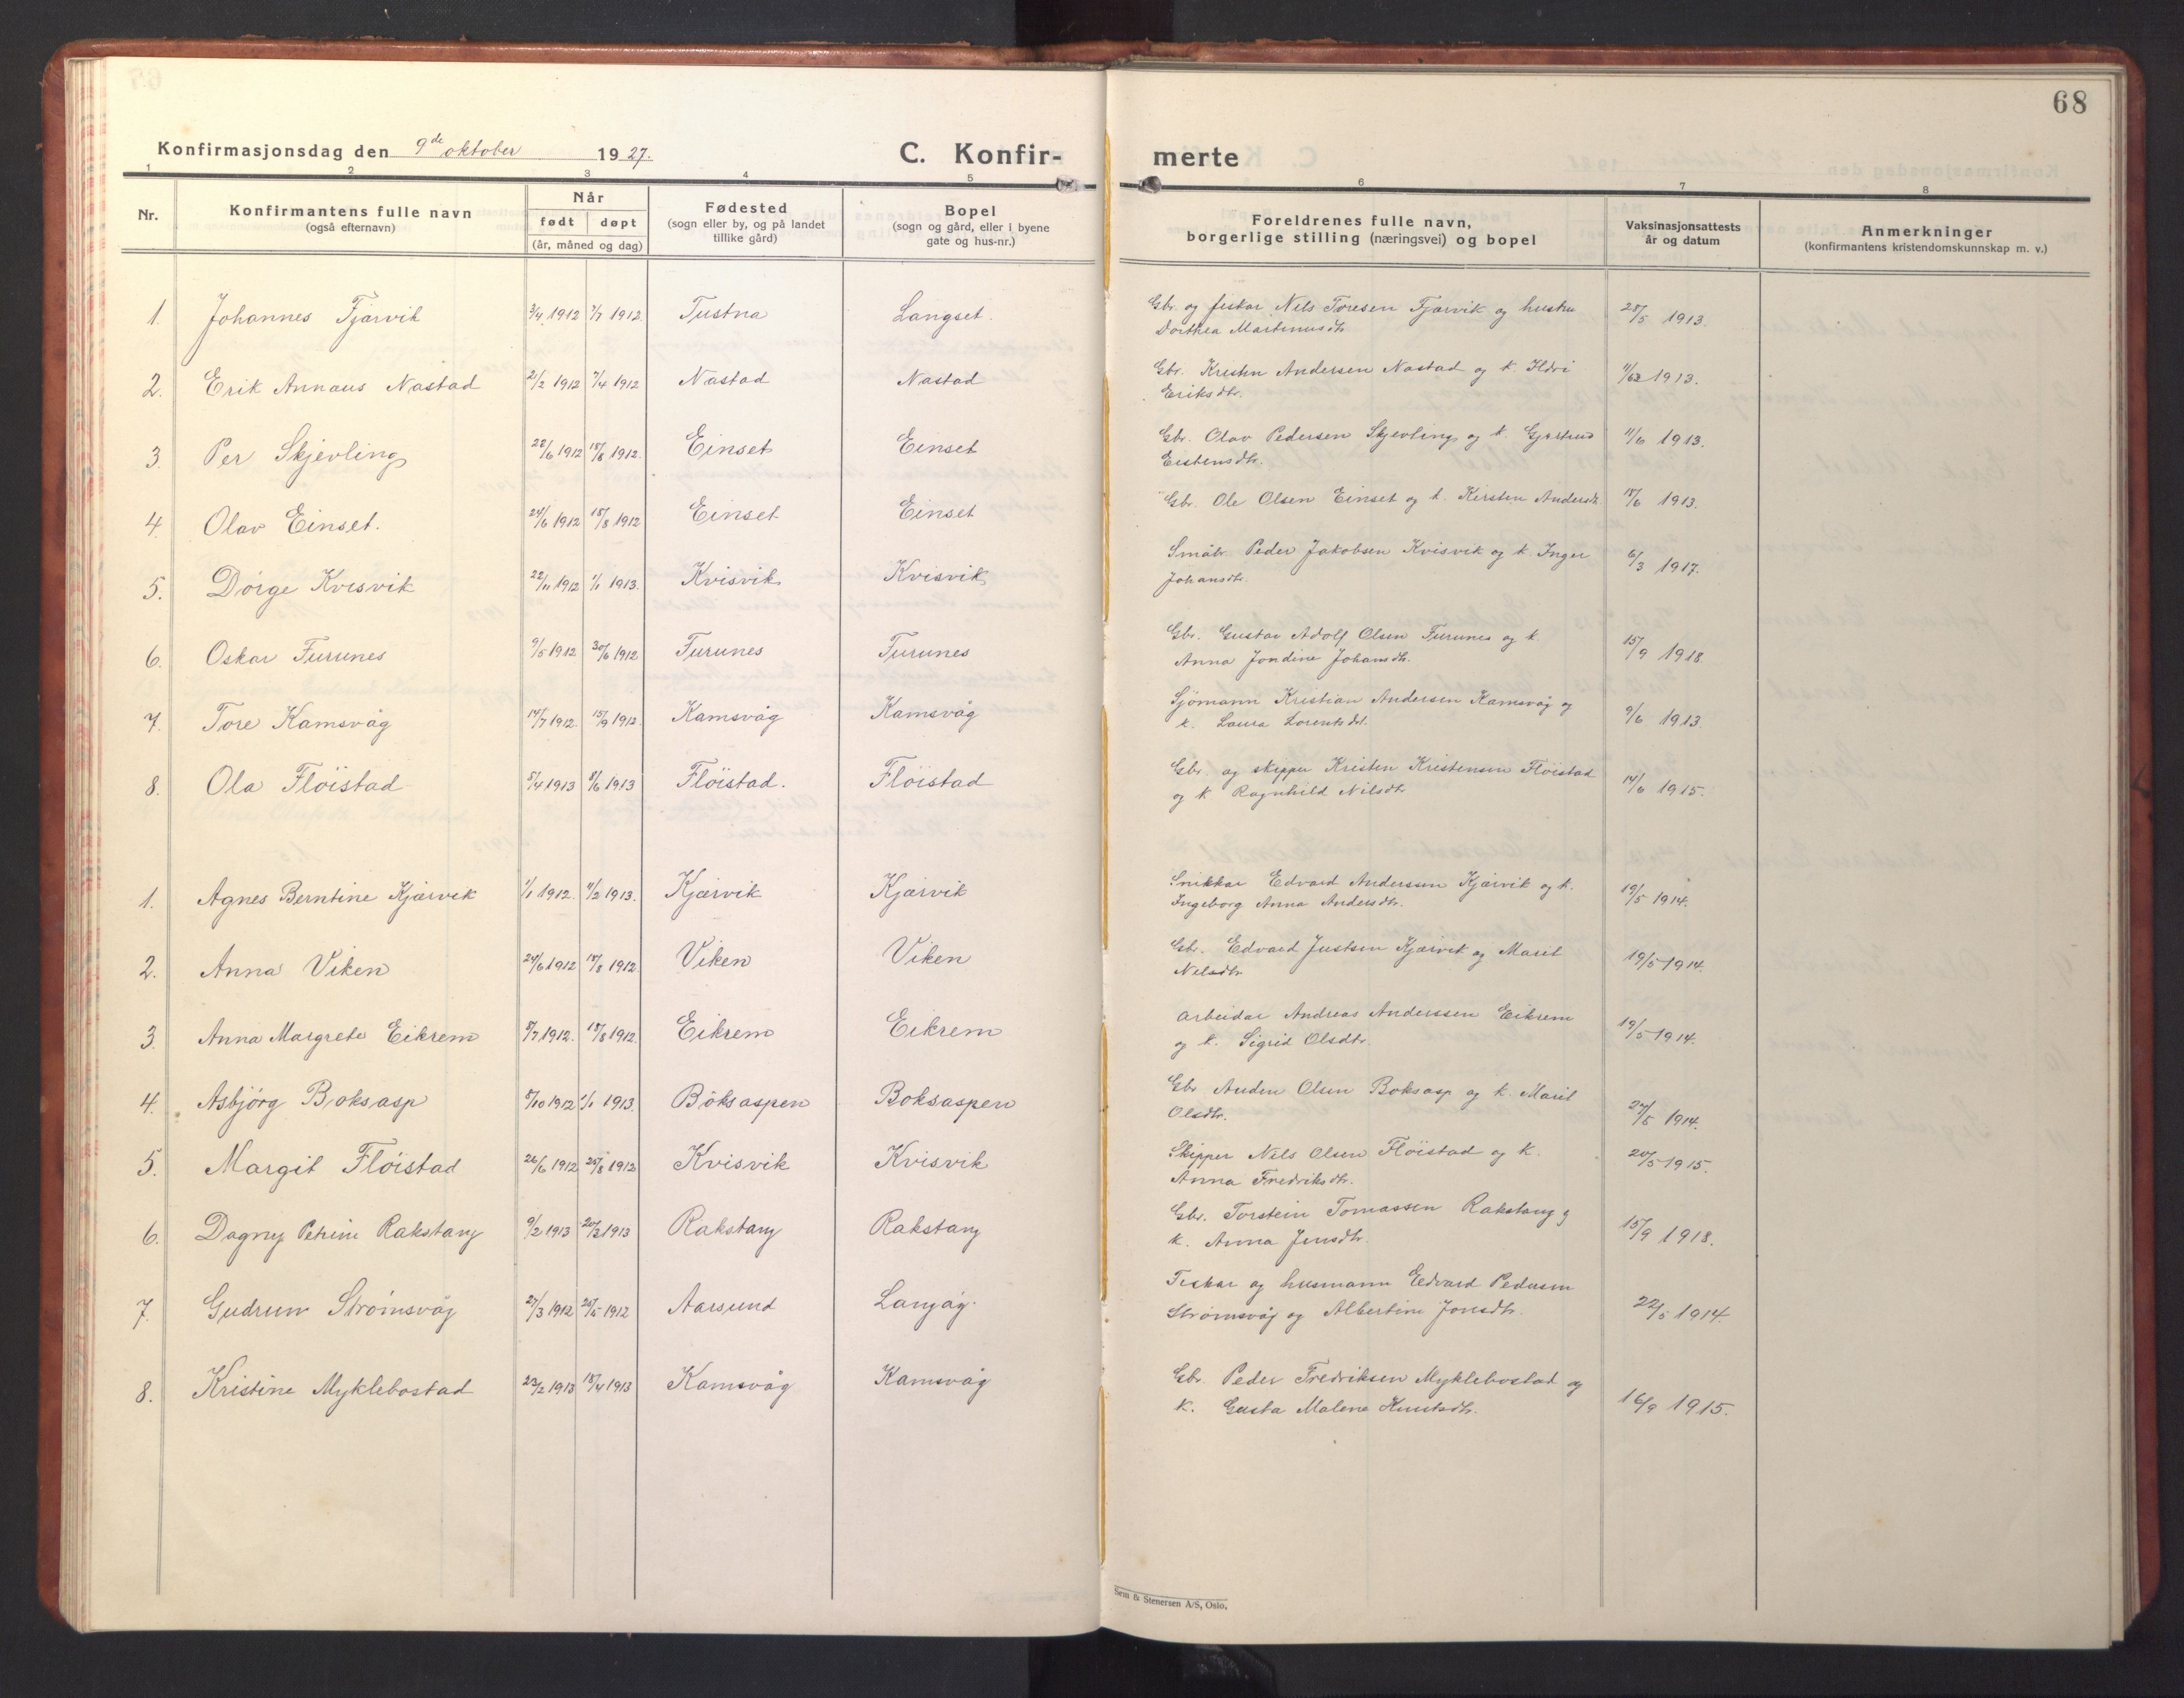 68
Konfirmasjonsdag den 9de oktober 1927. C. Konfir- merte
1 2 3 4 5 6 7 8
Nr. Konfirmantens fulle navn (også efternavn) Når født døpt (år, måned og dag) Fødested (sogn eller by, og på landet tillike gård) Bopel (sogn og gård, eller i byene gate og hus-nr.) Foreldrenes fulle navn, borgerlige stilling (næringsvei) og bopel Vaksinasjonsattests år og datum Anmerkninger (konfirmantens kristendomskunnskap m. v.)
1. Johannes Fjærvik 3/4 1912 7/7 1912. Tustna Langset. Gbr. og fiskar Nils Toresen Fjærvik og hustru 28/5 1913.
Dorthea Martinusdtr.
2. Erik Annæus Nastad 21/2 1912 7/4 1912 Nastad Nastad Gbr. Kristen Andersen Nastad og k. Ildri 1913.
Eriksdtr.
3. Per Skjevling 28/6 1912 18/8 1912. Einset Einset Gbr. Olav Pedersen Skjevling og k. Gjertrud 11/6 1913.
Eistensdtr.
4. Olav Einset. 24/6 1912 18/8 1912 Einset Einset Gbr. Ole Olsen Einset og k. Kirsten Andersdt. 18/6 1913.
5. Dørge Kvisvik 22/11 1912 1/1 1913. Kvisvik Kvisvik Småbr. Peder Jakobsen Kvisvik og k. Inger 6/3 1917.
Johansdtr.
6. Oskar Furunes 9/5 1912 30/6 1912 Furunes Furunes Gbr. Gustav Adolf Olsen Furunes og k. 15/9 1918.
Anna Jondine Johansdtr.
7. Tore Kamsvåg 14/7 1912. 15/9 1912 Kamsvåg Kamsvåg Sjømann Kristian Andersen Kamsvåg og 9/6 1913.
k. Laura Lorentsdtr.
8. Ola Fløistad 5/4 1913 8/6 1913 Fløistad. Fløistad Gbr. og skipper Kristen Kristensen Fløistad 14/6 1915.
og k. Ragnhild Nilsdtr.
1. Agnes Berntine Kjærvik 1/1 1912. 11/2 1913. Kjærvik Kjærvik Snikkar Edvard Anderssen Kjærvik og k. 19/5 1914.
Ingeborg Anna Andersdtr.
2. Anna Viken 24/6 1912 18/8 1912. Viken Viken Gbr. Edvard Justsen Kjærvik og Marit 19/5 1914.
Nilsdtr
3. Anna Margrete Eikrem 8/7 1912. 18/8 1912. Eikrem Eikrem Arbeidar Andreas Anderssen Eikrem 19/5 1914.
og k. Sigrid Olsdtr.
4. Asbjørg Boksasp 8/10 1912 1/1 1913. Boksaspen Boksaspen Gbr. Auden Olsen Boksasp og k. Marit 27/5 1914.
Olsdtr.
5. Margit Fløistad 26/6 1912 25/8 1912 Kvisvik Kvisvik Skipper Nils Olsen Fløistad og k. 20/5 1915.
Anna Fredriksdtr.
6. Dagny Petrine Rakstang 9/2 1913 20/3 1913 Rakstang Rakstang Gbr. Torstein Tomassen Rakstang og 15/9 1918.
k. Anna Jensdtr.
7. Gudrun Strømsvåg 27/3 1912 26/5 1912 Aarsund Langåg. Fiskar og husmann Edvard Pedersen
Strømsvåg og Albertine Jonsdtr. 22/5 1914.
8. Kristine Myklebostad 23/2 1913 18/4 1913 Kamsvåg Kamsvåg Gbr. Peder Fredriksen Myklebostad og
k. Gusta Malene Knutsdtr. 16/9 1915.
Sem & Stenersen A/S, Oslo.